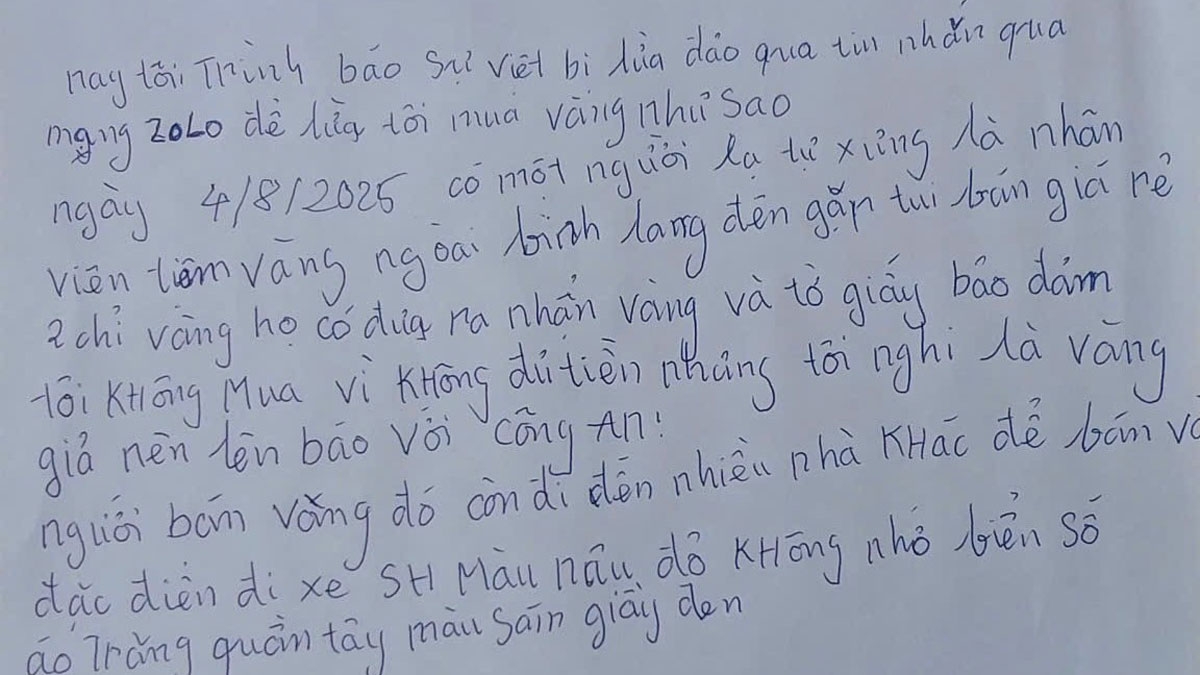 nay tôi Trình báo sự việt bị lừa đảo qua tin nhắn qua
mạng ZOLO để lừa tôi mua vàng như sao
ngày 4/8/2025 có một người lạ tự xưng là nhân
viên tiệm vàng ngoài bình lang đến gặp tui bán giá rẻ
2 chỉ vàng họ có đưa ra nhẫn vàng và tờ giấy bảo đảm
tôi KHông Mua vì KHông đủ tiền nhưng tôi nghi là vàng
giả nên lên báo với công An!
người bán vàng đó còn đi đến nhiều nhà KHác để bán và
đặc điển đi xe SH Màu nâu đỏ KHông nhớ biển số
áo Trắng quần tây màu sán giầy đen